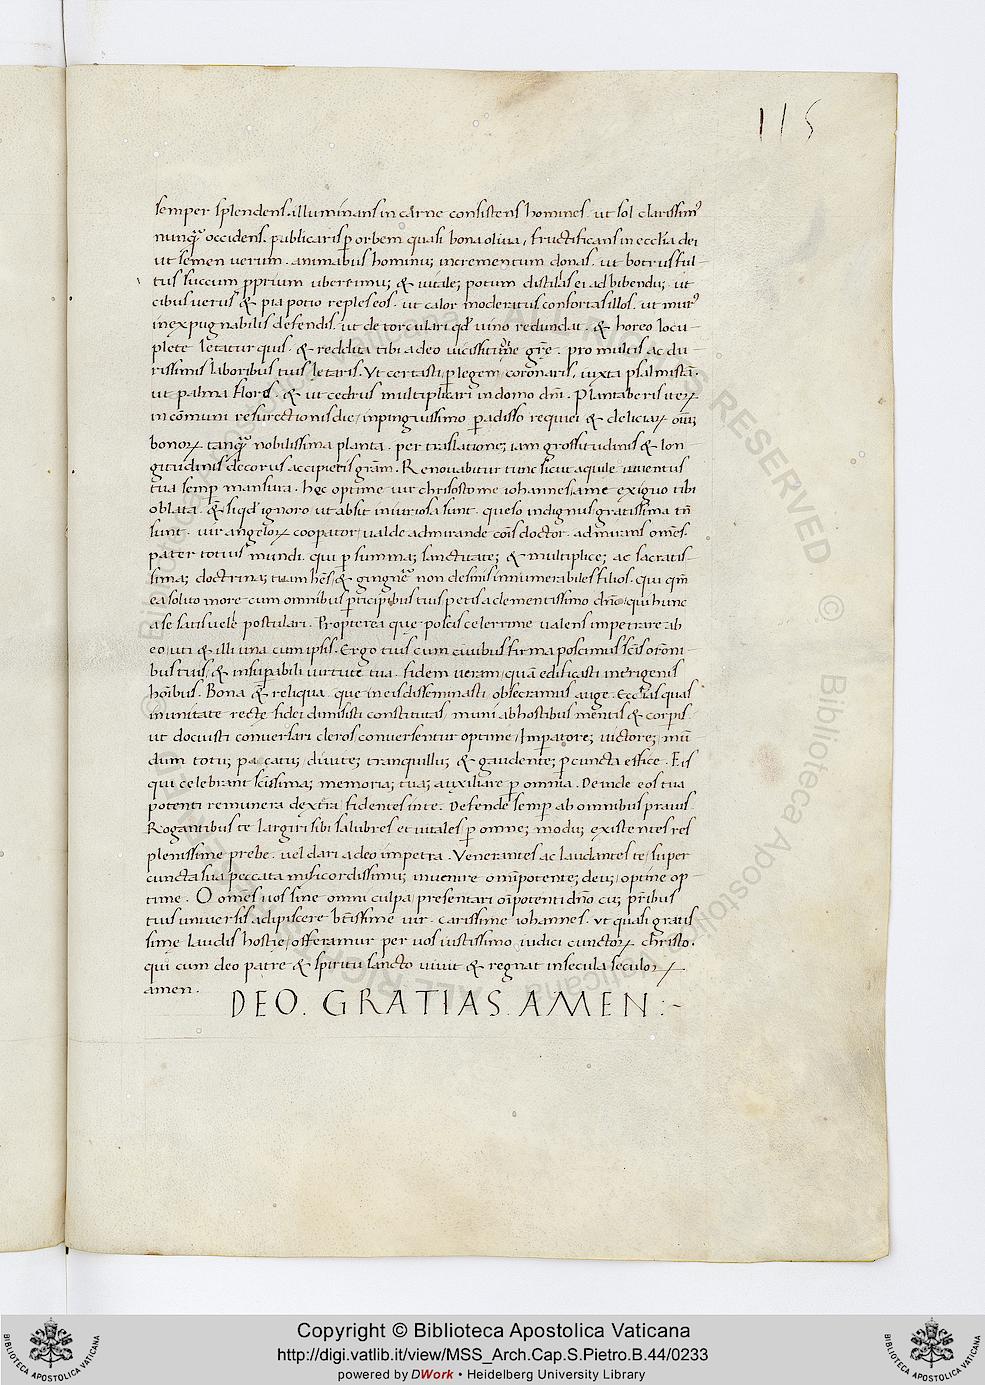 115
semper splendens. illuminans in carne consistens homines. ut sol clarissimꝰ
nunqᷓ occidens. publicaris ꝑ orbem quasi bona oliua, fructificans in eccl̄ia dei
ut semen uerum. animabus hominuꝫ incrementum donas. ut botrus ful-
tus succum ꝓprium uberrimuꝫ & uitaleꝫ potum distillas ei ad bibenduꝫ. ut
cibus uerus & pia potio reples eos. ut calor moderatus confortas illos. ut murꝰ
inexpugnabilis defendis. ut de torculari qd̄ uino redundat. & horeo locu-
plete letatur quis. & reddita tibi a deo uicissitudine gr̄e. pro multis ac du-
rissimis laboribus tuis letaris. Ut certasti ꝑ legem, coronaris, iuxta psalmistā.
ut palma flores. & ut cedrus multiplicari in domo dn̄i. Plantaberis iteꝝ
in cōmuni resurectionis die, in pinguissimo ꝑadisso requiei & deliciaꝝ oīuꝫ
bonoꝝ tanqᷓ nobilissima planta. per traslationeꝫ iam grossitudinis & lon
gitudinis decorus accipietis grām. Renouabitur tunc sicut aquile iuuentus
tua semꝑ mansura. hęc optime uir chrisostome iohannes, a me exiguo tibi
oblata. & si qd̄ ignoro ut absit iniuriosa sunt. queso indignus gratissima tn̄
sunt. uir angeloꝝ cooꝑator, ualde admirande cōis doctor. admirans omēs.
pater totius mundi. qui ꝑ summaꝫ sanctitateꝫ & multipliceꝫ ac sacratis-
simaꝫ doctrinaꝫ tuam
ea soluo more cum omnibus ꝑticipibus tuis petis a clementissimo dn̄o, qui hunc
a se satis uelle postulari. Propterea que poscis celerrime ualens impetrare ab
eo, uti & illi una cum ipsis. Ergo tuis cum ciuibus firma poscimus
bus tuis, & insuꝑabili uirtute tua. fidem ueram, quā edificasti
hōibus. Bona & reliqua. que in eis disseminasti, obsecramus auge. Eccl̄ias quas
in unitate recte fidei dimisisti constitutas, muni ab hostibus mentis & corꝑis.
ut docuisti conuersari cleros conuersentur optime, Imꝑatoreꝫ uictoreꝫ, mū
dum totuꝫ pacatuꝫ, diuiteꝫ tranquilluꝫ & gaudenteꝫ ꝑ cuncta effice. Eis
qui celebrant sc̄issimaꝫ memoriaꝫ tuaꝫ auxiliare ꝑ omnia. Deinde eos tua
potenti remunera dextra fidentes in te. Defende semꝑ ab omnibus prauis
Rogantibus te largiri sibi salubres et uitales ꝑ omneꝫ moduꝫ existentes res
plenissime prebe. uel dari a deo impetra. Venerantes ac laudantes te, super
cuncta sua peccata misericordissimuꝫ inuenire omīpotenteꝫ deuꝫ, optine op-
time. O omēs uos sine omni culpa, presentari oīpotenti dn̄o cuꝫ
tuis uniuersis adipiscere bt̄issime uir. carissime iohannes. Ut quasi gratis
sime laudis hostie, offeramur per uos iustissimo iudici cunctoꝝ christo.
qui cum deo patre & spiritu sancto uiuit & regnat in secula seculoꝝ
amen.
DEO. GRATIAS. AMEN:~
Copyright © Biblioteca Apostolica Vaticana
http://digi.vatlib.it/view/MSS_Arch.Cap.S.Pietro.B.44/0233
powered by DWork • Heidelberg University Library